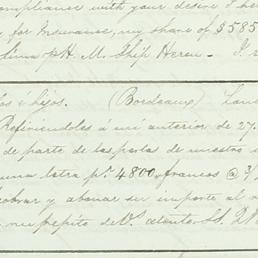 compliance with your desire I he
for Insurance, my share of $585
Lima pr H. M. Ship Heron - I
os é hijos. (Bordeaux)
Refiriendoles á mi anterior de 27.
de parte de las perlas de nuestro
una letra pr. 4800 francos @ 3/
cobrar y abonar su importe al
me repito de Vs. atento. Sd. Q.